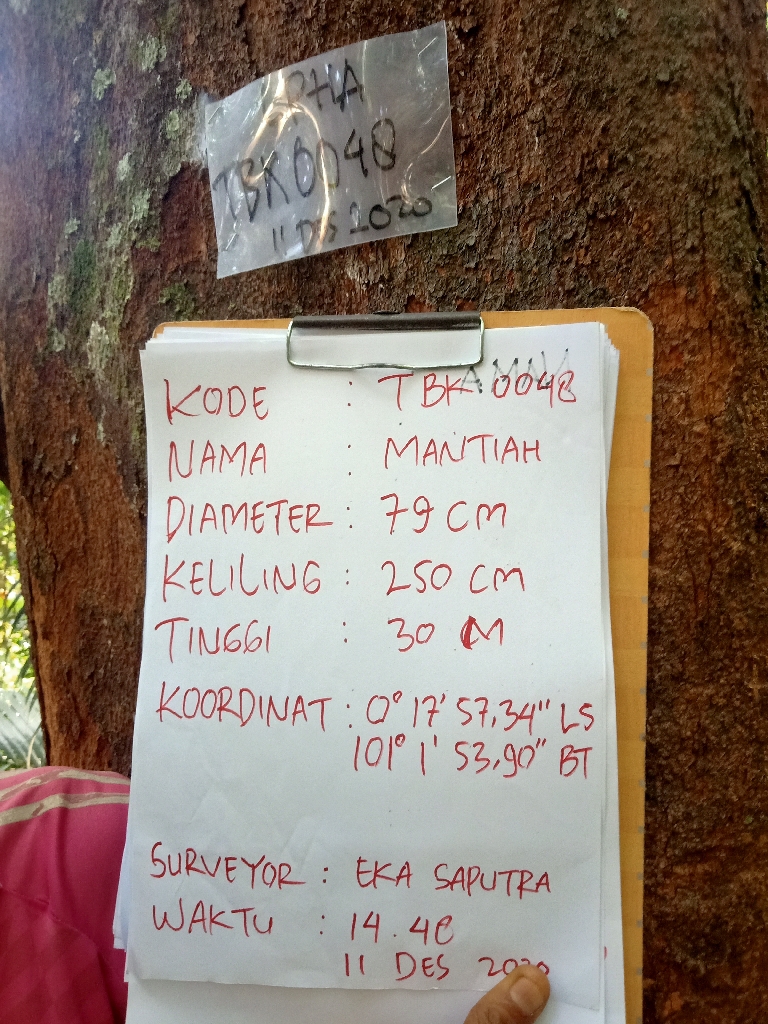 TBK 0048
11 DES 2020
KODE : TBK 0048
NAMA : MANTIAH
DIAMETER : 79 CM
KELILING : 250 CM
TINGGI : 30 M
KOORDINAT : 0° 17' 57,34" LS
101° 1' 53,90" BT
SURVEYOR : EKA SAPUTRA
WAKTU : 14.48
11 DES 2020